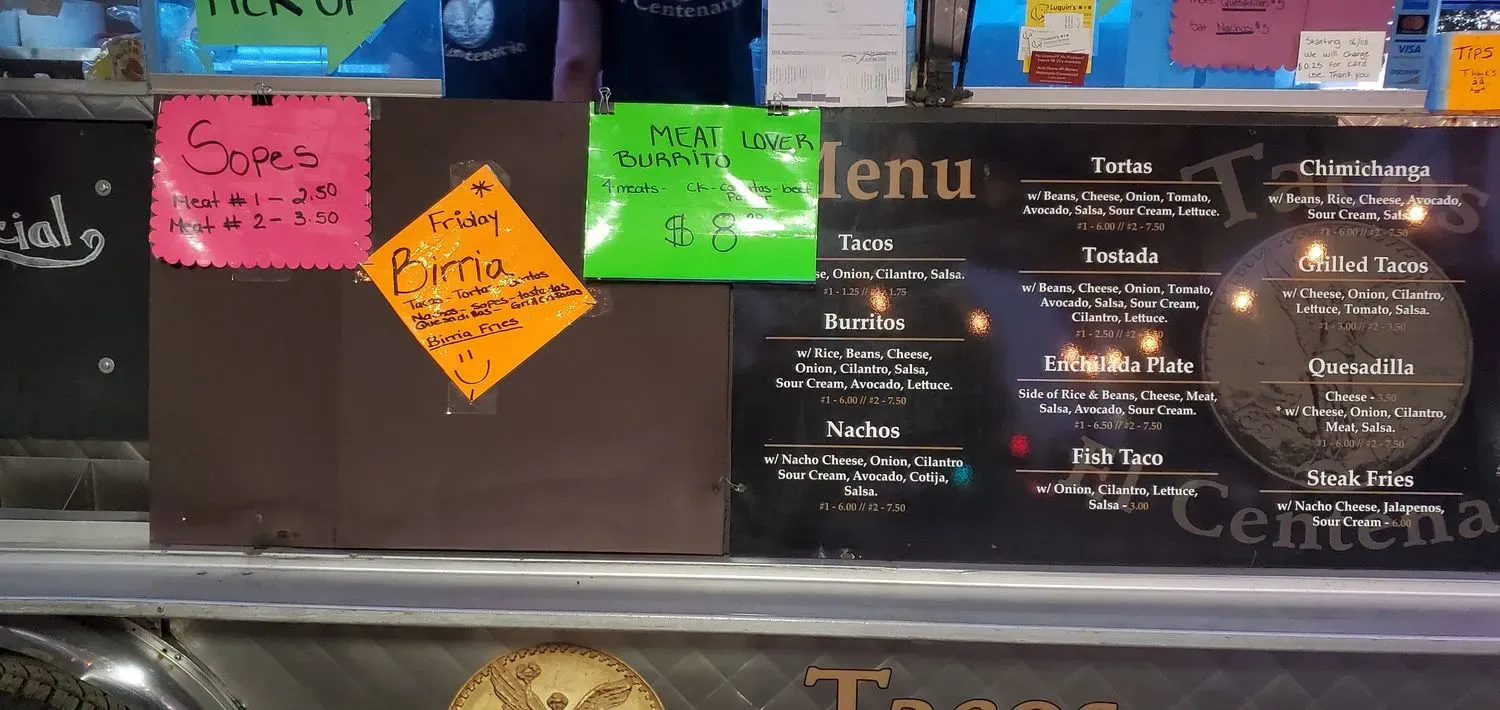 PICK UP
Centenario
Centenario
Luquin's
Quesadillas $5
Sat Nachos $5
Starting 06/08
we will charge
$0.25 for card
use. Thank you
VISA
DISCOVER
TIPS
Thank's
Sopes
Meat # 1 - 2.50
Meat # 2 - 3.50
Friday
Birria
Nachos - Sopes - tostadas
Birria Fries
MEAT LOVER
BURRITO
4 meats -
$ 8
cial
Menu
Tacos
Onion, Cilantro, Salsa.
#1 - 1.25 // 1.75
Burritos
w/ Rice, Beans, Cheese,
Onion, Cilantro, Salsa,
Sour Cream, Avocado, Lettuce.
#1 - 6.00 // #2 - 7.50
Nachos
w/ Nacho Cheese, Onion, Cilantro
Sour Cream, Avocado, Cotija,
Salsa.
#1 - 6.00 // #2 - 7.50
Tortas
w/ Beans, Cheese, Onion, Tomato,
Avocado, Salsa, Sour Cream, Lettuce.
#1 - 6.00 // #2 - 7.50
Tostada
w/ Beans, Cheese, Onion, Tomato,
Avocado, Salsa, Sour Cream,
Cilantro, Lettuce.
#1 - 2.50 // #2 - 3.50
Enchilada Plate
Side of Rice & Beans, Cheese, Meat,
Salsa, Avocado, Sour Cream.
#1 - 6.50 // #2 - 7.50
Fish Taco
w/ Onion, Cilantro, Lettuce,
Salsa - 3.00
Chimichanga
w/ Beans, Rice, Cheese, Avocado,
Sour Cream, Salsa
#1 - 6.00 // #2 - 7.50
Grilled Tacos
w/ Cheese, Onion, Cilantro,
Lettuce, Tomato, Salsa.
#1 - 3.00 // #2 - 3.50
Quesadilla
Cheese - 3.50
* w/ Cheese, Onion, Cilantro,
Meat, Salsa.
#1 - 6.00 // #2 - 7.50
Steak Fries
w/ Nacho Cheese, Jalapenos,
Sour Cream - 6.00
Tacos
El Centena
Tacos